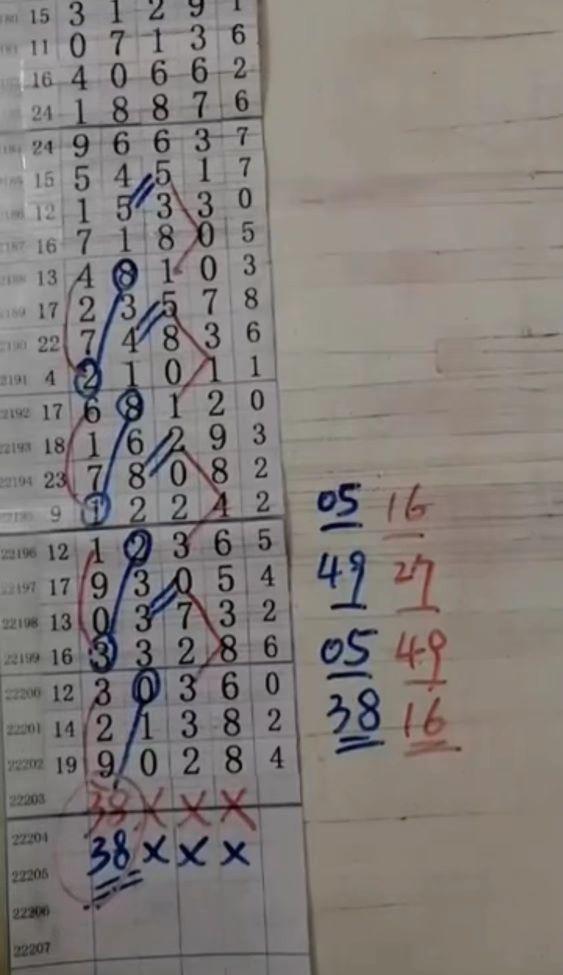 15 3 1 2 9 1
11 0 7 1 3 6
16 4 0 6 6 2
24 1 8 8 7 6
24 9 6 6 3 7
15 5 4 5 1 7
12 1 5 3 3 0
2187 16 7 1 8 0 5
2188 13 4 8 1 0 3
2189 17 2 3 5 7 8
2190 22 7 4 8 3 6
2191 4 2 1 0 1 1
22192 17 6 8 1 2 0
22193 18 1 6 2 9 3
22194 23 7 8 0 8 2
22195 9 1 2 2 4 2
05 16
22196 12 1 2 3 6 5
22197 17 9 3 0 5 4
49 27
22198 13 0 3 7 3 2
22199 16 3 3 2 8 6
05 49
22200 12 3 0 3 6 0
22201 14 2 1 3 8 2
38 16
22202 19 9 0 2 8 4
22203 38 X X X
22204
22205 38 X X X
22206
22207